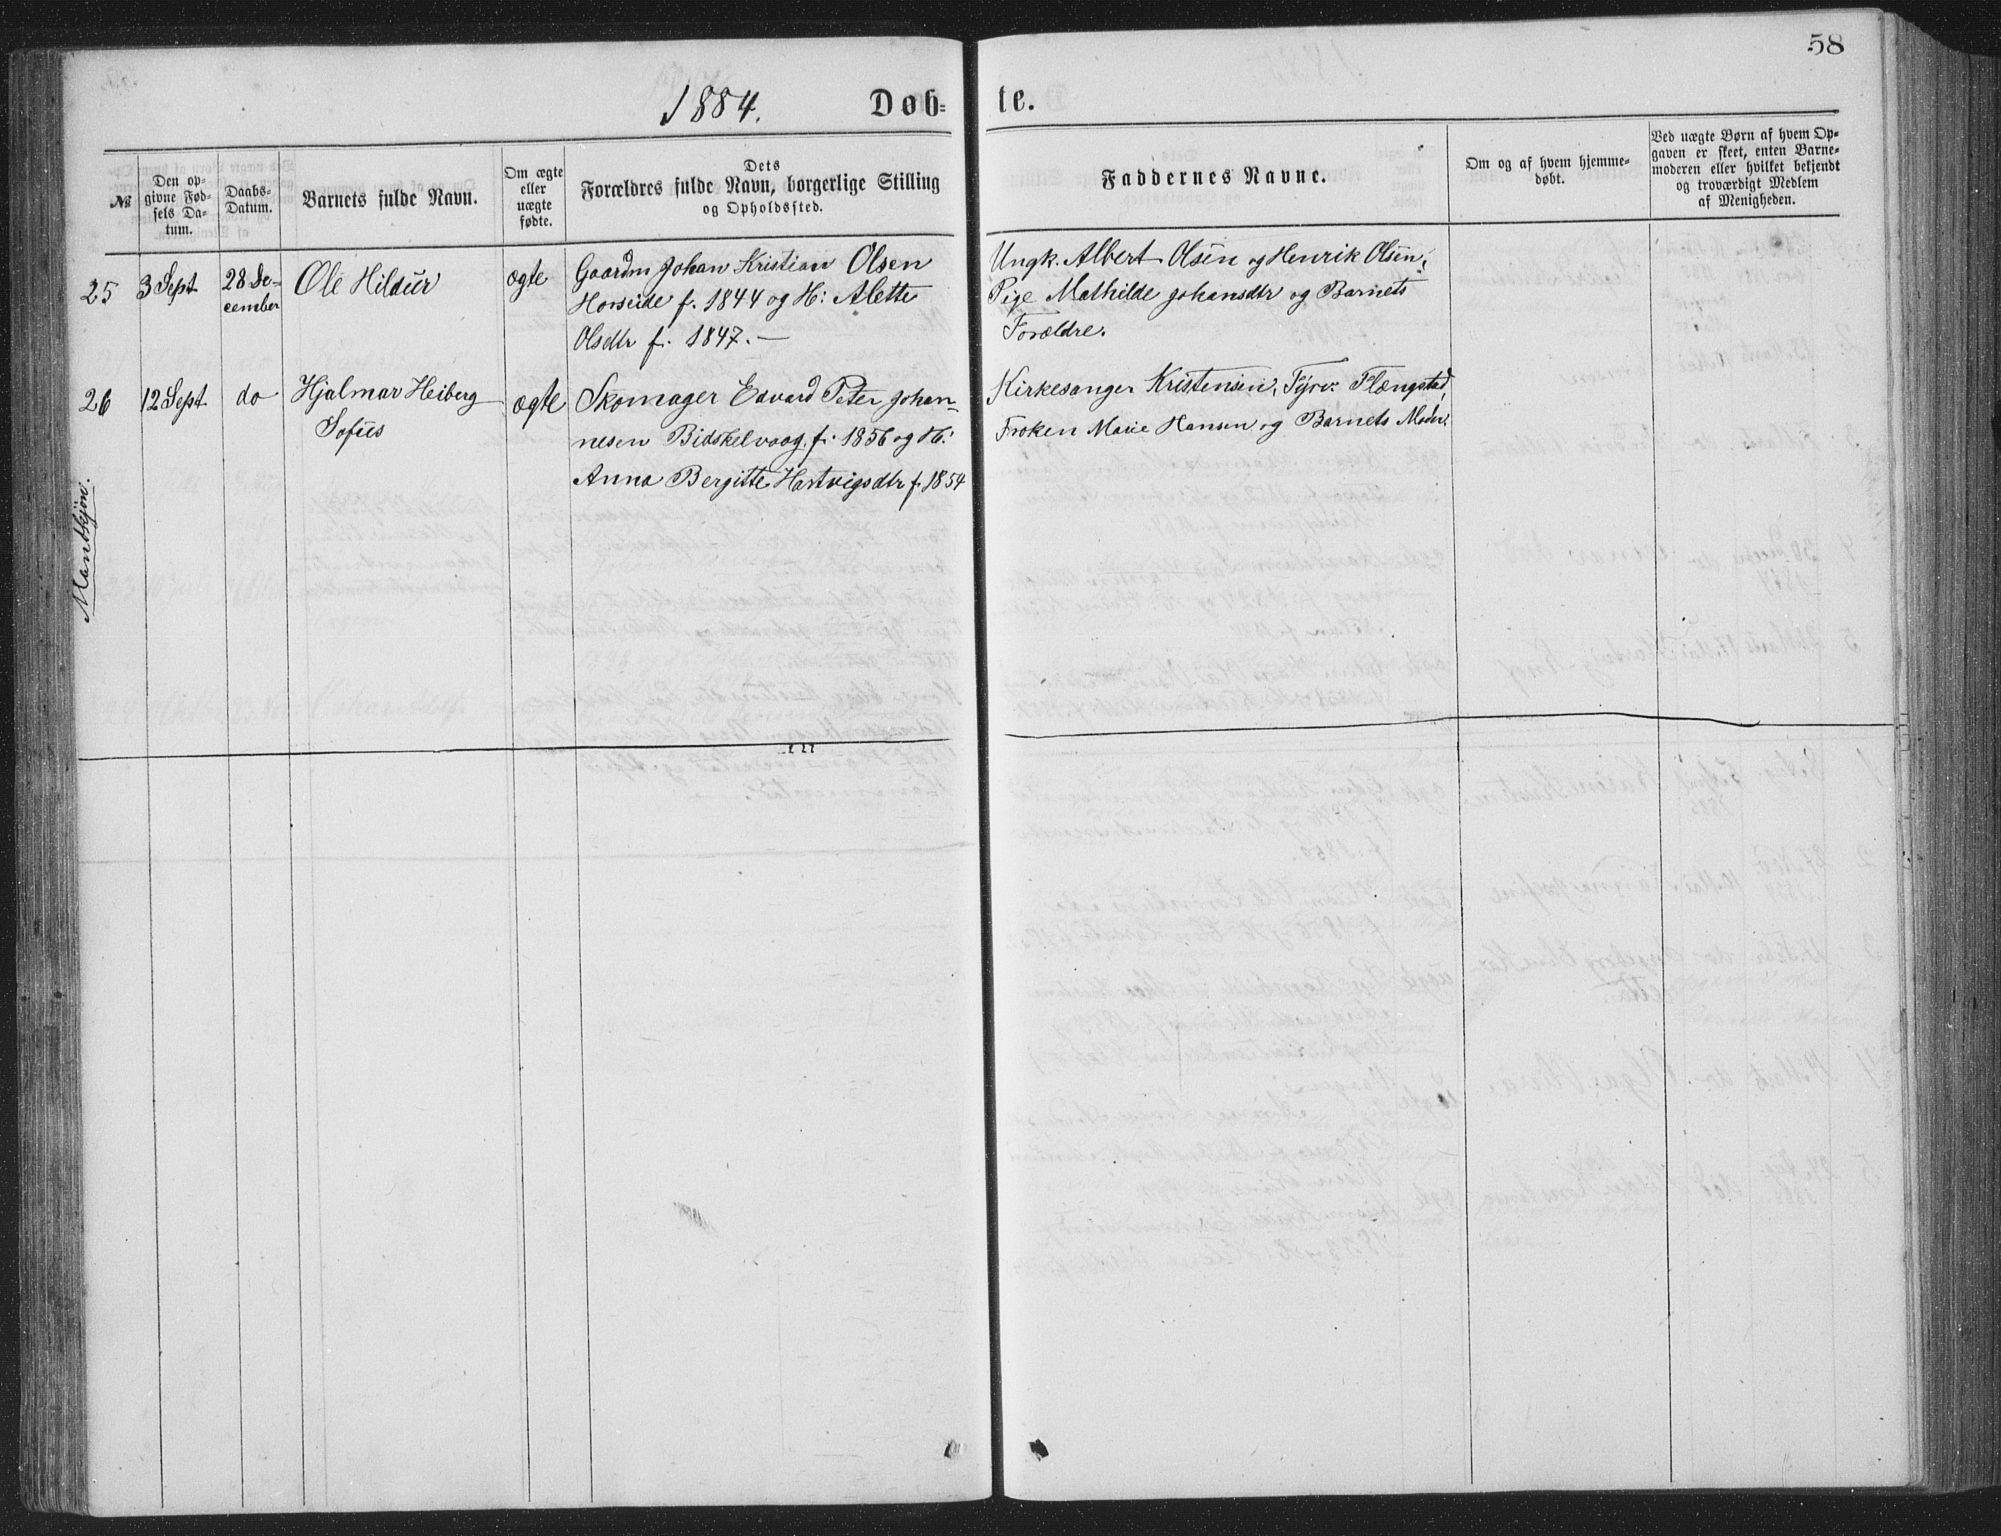 58
1884. Døb- te.
№
Den op-
givne Fød-
sels Da-
tum.
Daabs-
Datum.
Barnets fulde Navn.
Om ægte
eller
uægte
fødte.
Dets
Forældres fulde Navn, borgerlige Stilling
og Opholdssted.
Faddernes Navne.
Om og af hvem hjemme-
døbt.
Ved uægte Børn af hvem Op-
gaven er skeet, enten Barne-
moderen eller hvilket bekjendt
og troværdigt Medlem
af Menigheden.
25
3 Sept
28 De-
cember
Ole Hildur
ægte
Gaardm Johan Kristian Olsen
Horseide f. 1844 og H: Alette
Olsdtr f. 1847. —
Ungk. Albert Olsen og Henrik Olsen,
Pige Mathilde Johansdtr og Barnets
Forældre.
26
12 Sept
do
Hjalmar Heiberg
Sofus
ægte
Skomager Edvard Peter Johan-
nesen Bidskelvaag f. 1856 og H:
Anna Bergitte Hartvigsdtr f. 1854
Kirkesanger Kristensen, Tjrv. Flængstad,
Frøken Marie Hansen og Barnets Moder.
Mantkjøn.